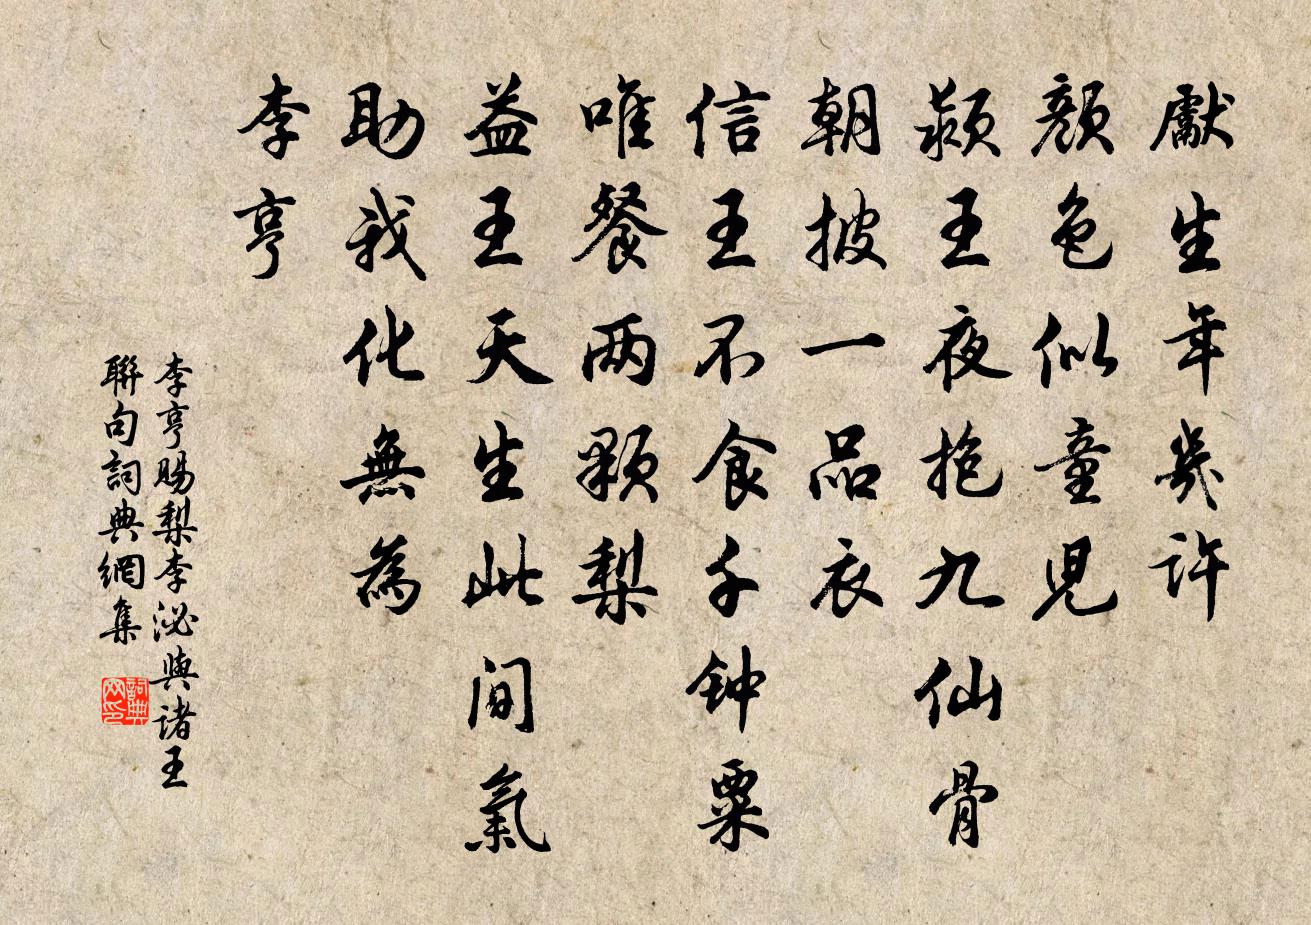 獻生年幾許
顏色似童兒
潁王夜抱九仙骨
朝披一品衣
信王不食千钟粟
唯餐两顆梨
益王天生此間氣
助我化無為
李亨
李亨賜梨李泌與諸王
聯句詞典網集
詞典
网印